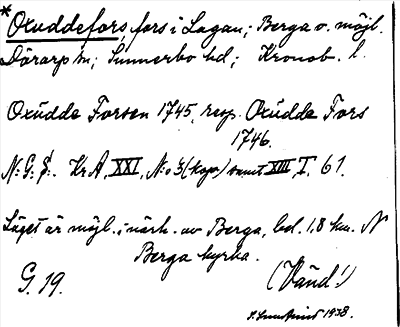 *Oxuddefors, fors i Lagan; Berga o. möjl.
Dörarp sn; Sunnerbo hd; Kronob. l.
Oxúdde Forsen 1745, resp. Oxúdde Fors
1746.
N: G: $:. Kr A, XXI, N:o 3 (kopr) samt XIII, I. 61.
Läget är möjl. i närh. av Berga, bel. 1,8 km. N
Berga kyrka.
G. 19.
(Vänd!)
1938.